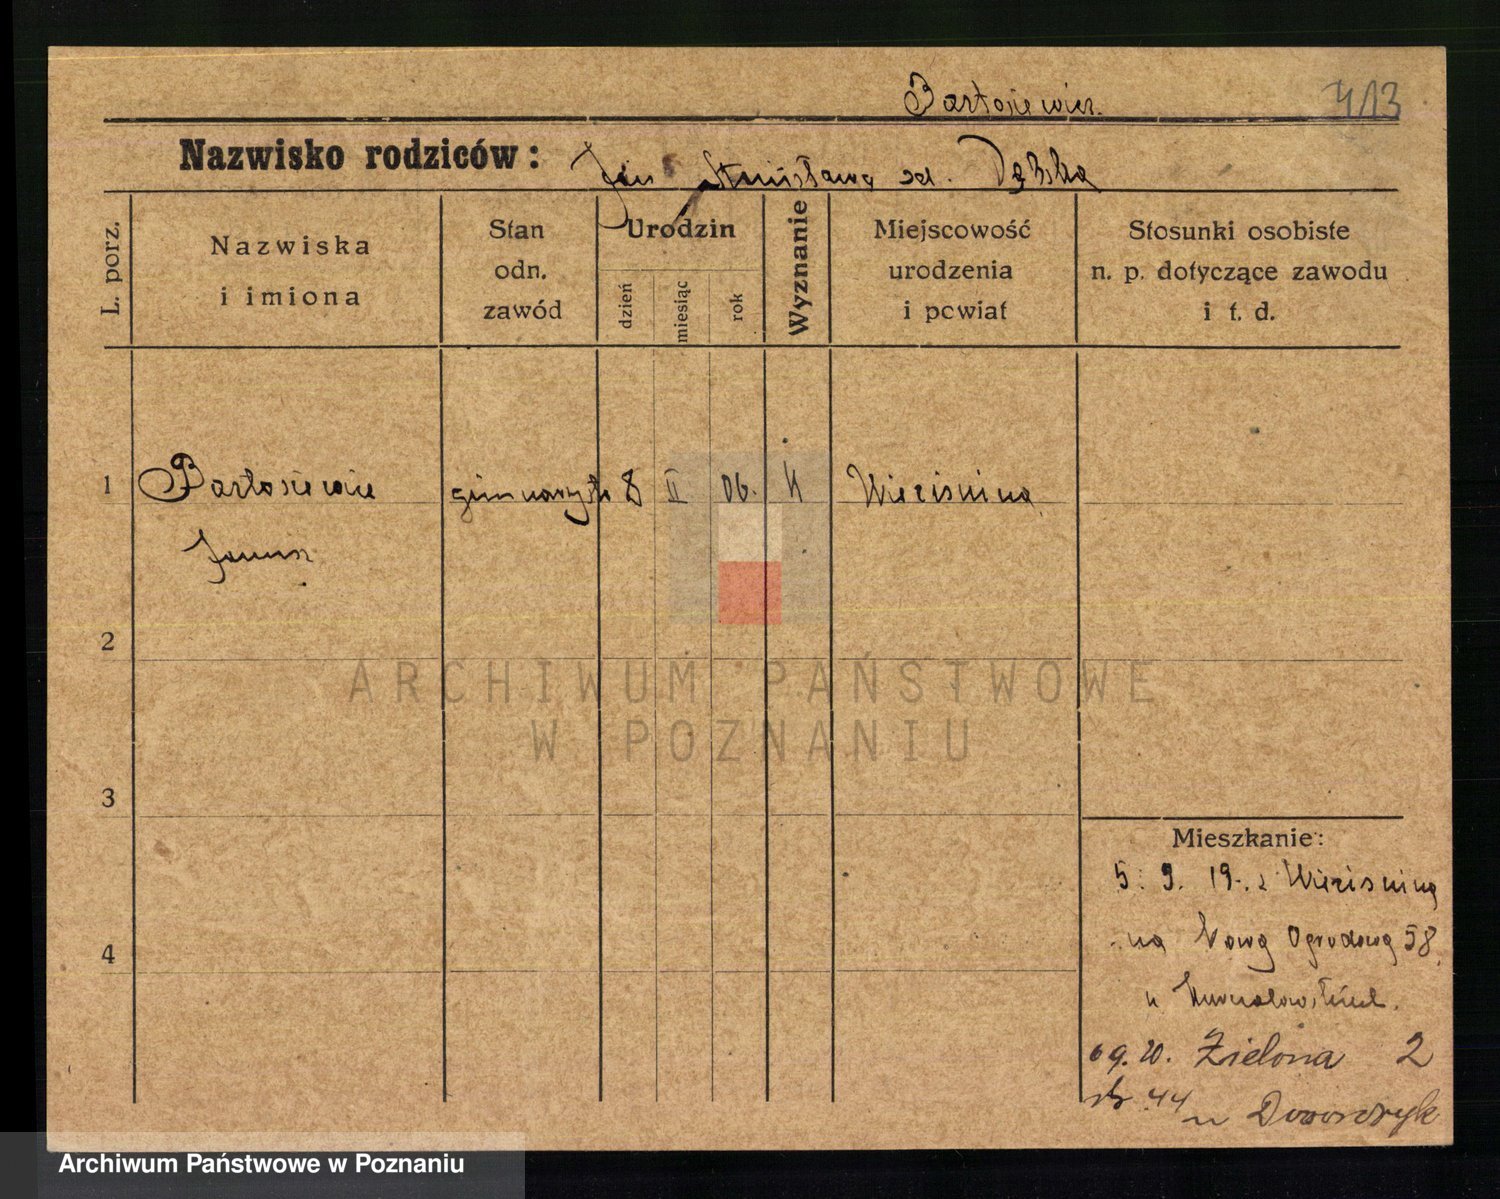 Bartosiewicz. 413
Nazwisko rodziców: Jan Stanisława zd. Dębska
L. porz.
Nazwiska
i imiona
Stan
odn.
zawód
Urodzin
dzień
miesiąc
rok
Wyznanie
Miejscowość
urodzenia
i powiat
Stosunki osobiste
n. p. dotyczące zawodu
i t. d.
1 Bartosiewicz 8 II 06. K
Janusz
2
ARCHIWUM PAŃSTWOWE
W POZNANIU
3
Mieszkanie:
5. 9. 19. z
na Nową Ogrodową 58
4
u
9. 20. Zielona 2
44
u
Archiwum Państwowe w Poznaniu